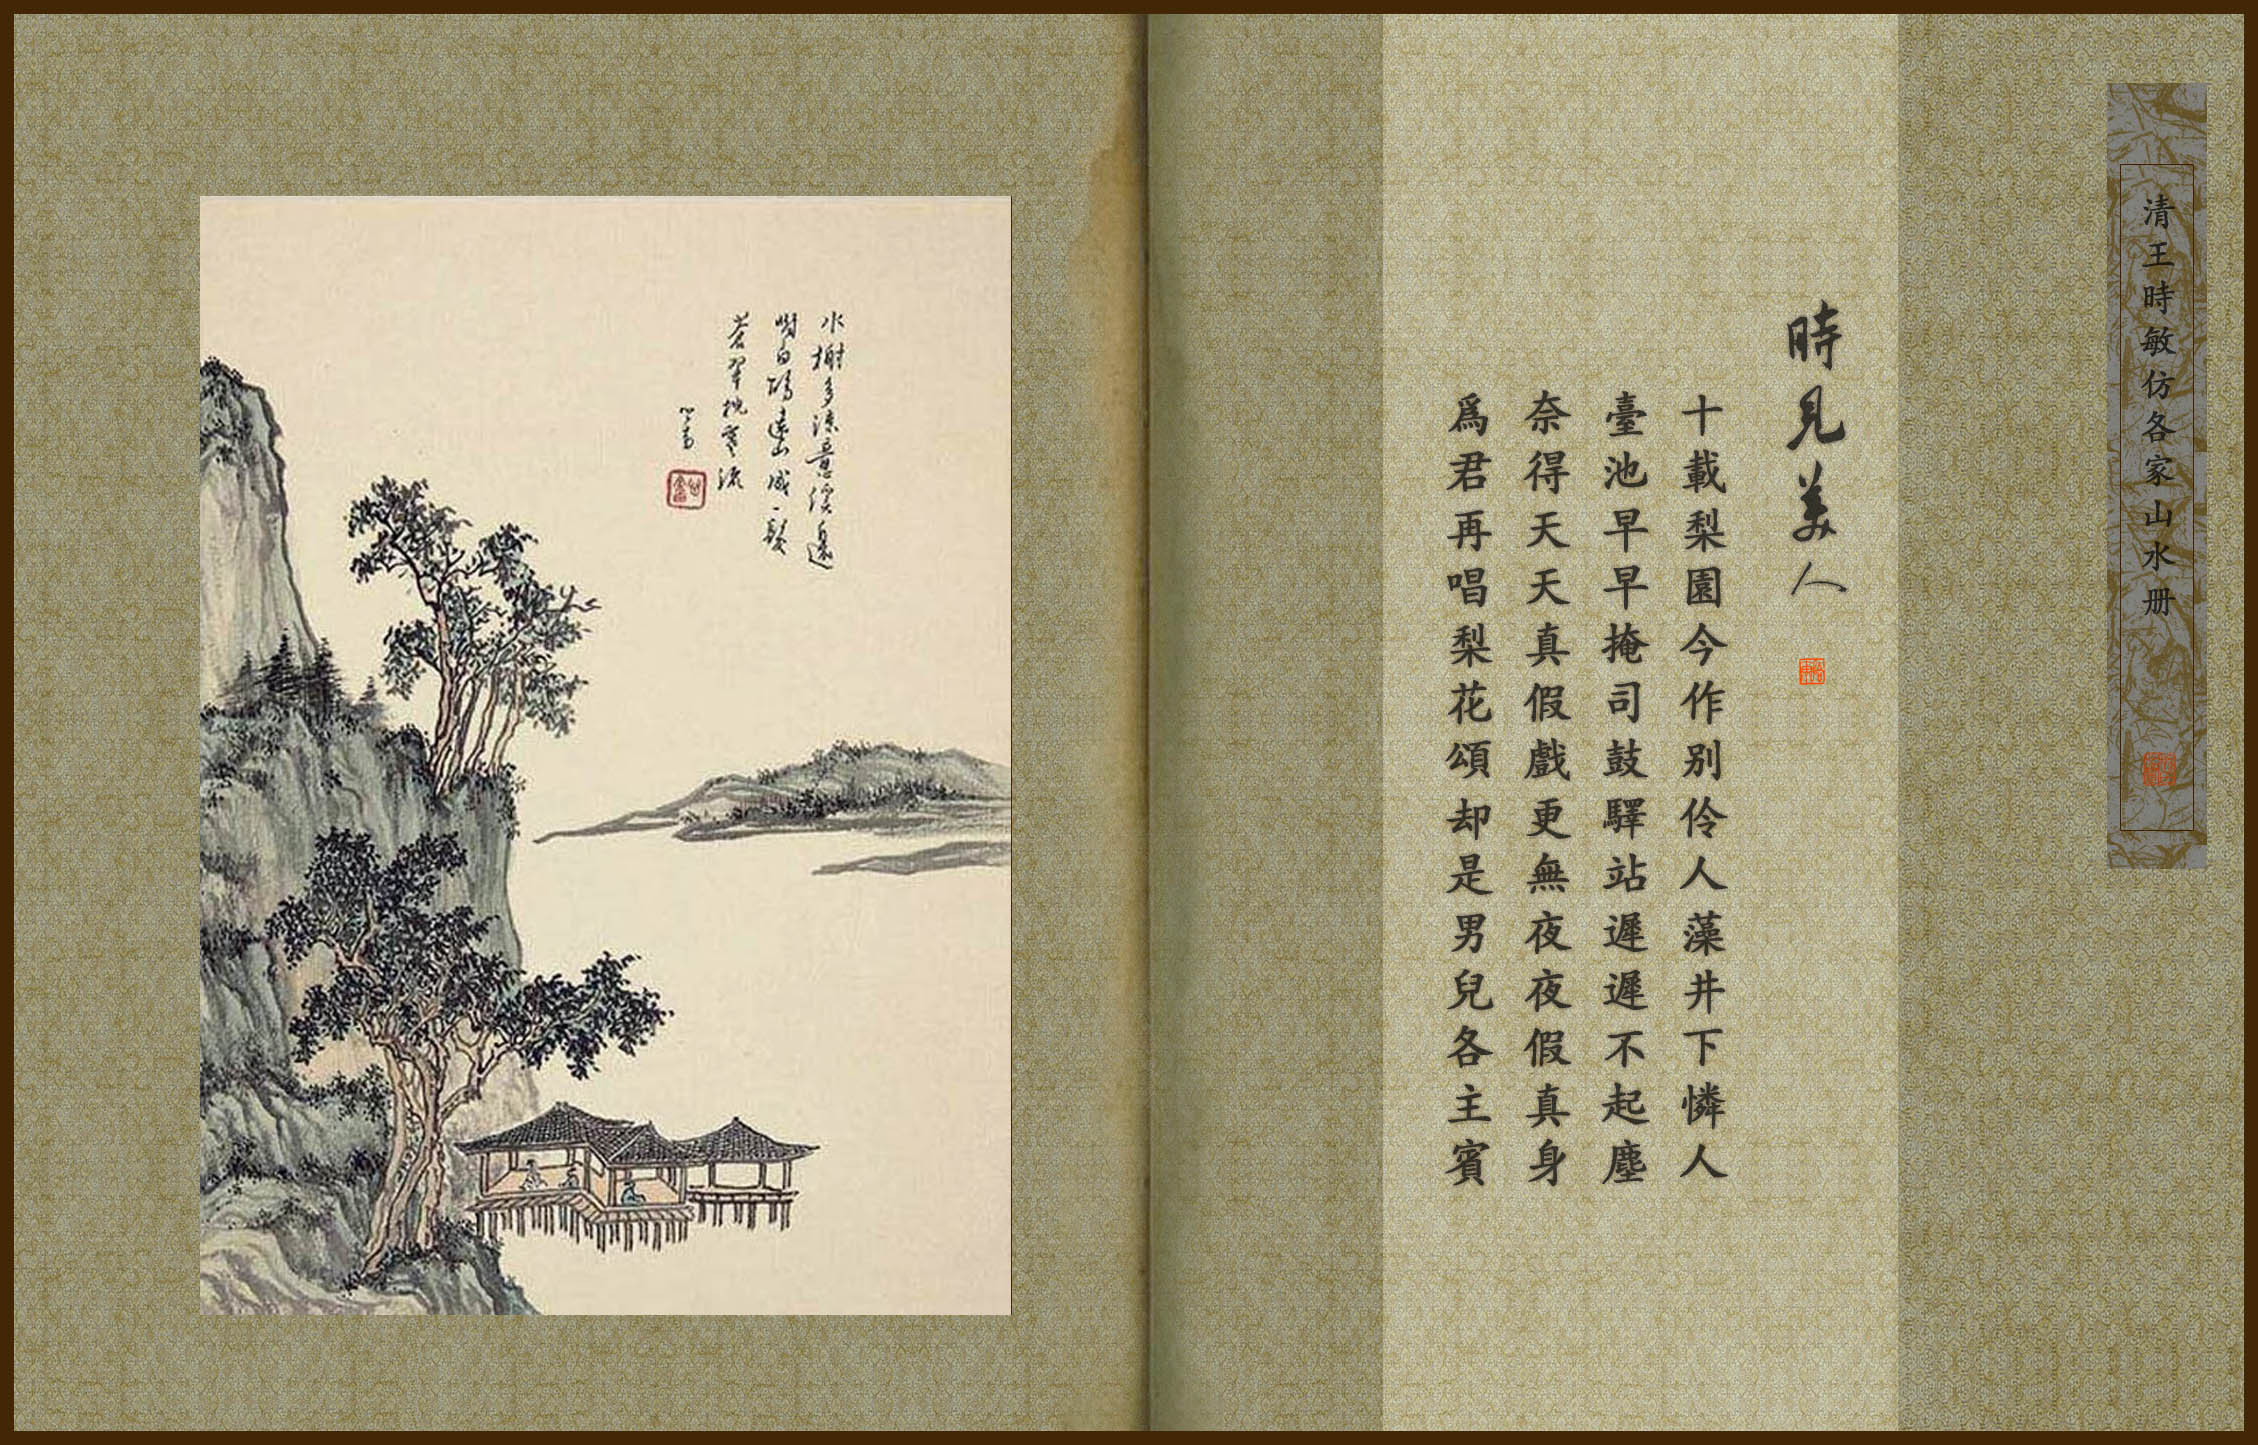 清王時敏仿各家山水册
時見美人
十載梨園今作别伶人藻井下憐人
臺池早早掩司鼓驛站遲遲不起塵
奈得天天真假戲更無夜夜假真身
爲君再唱梨花頌却是男兒各主賓
水榭多涼意溪邊
對白鷗遠山成一髮
蒼翠挽寒流
心畬